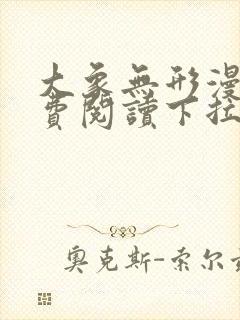 大象無形漫
費閱讀下拉
奧克斯-索尔